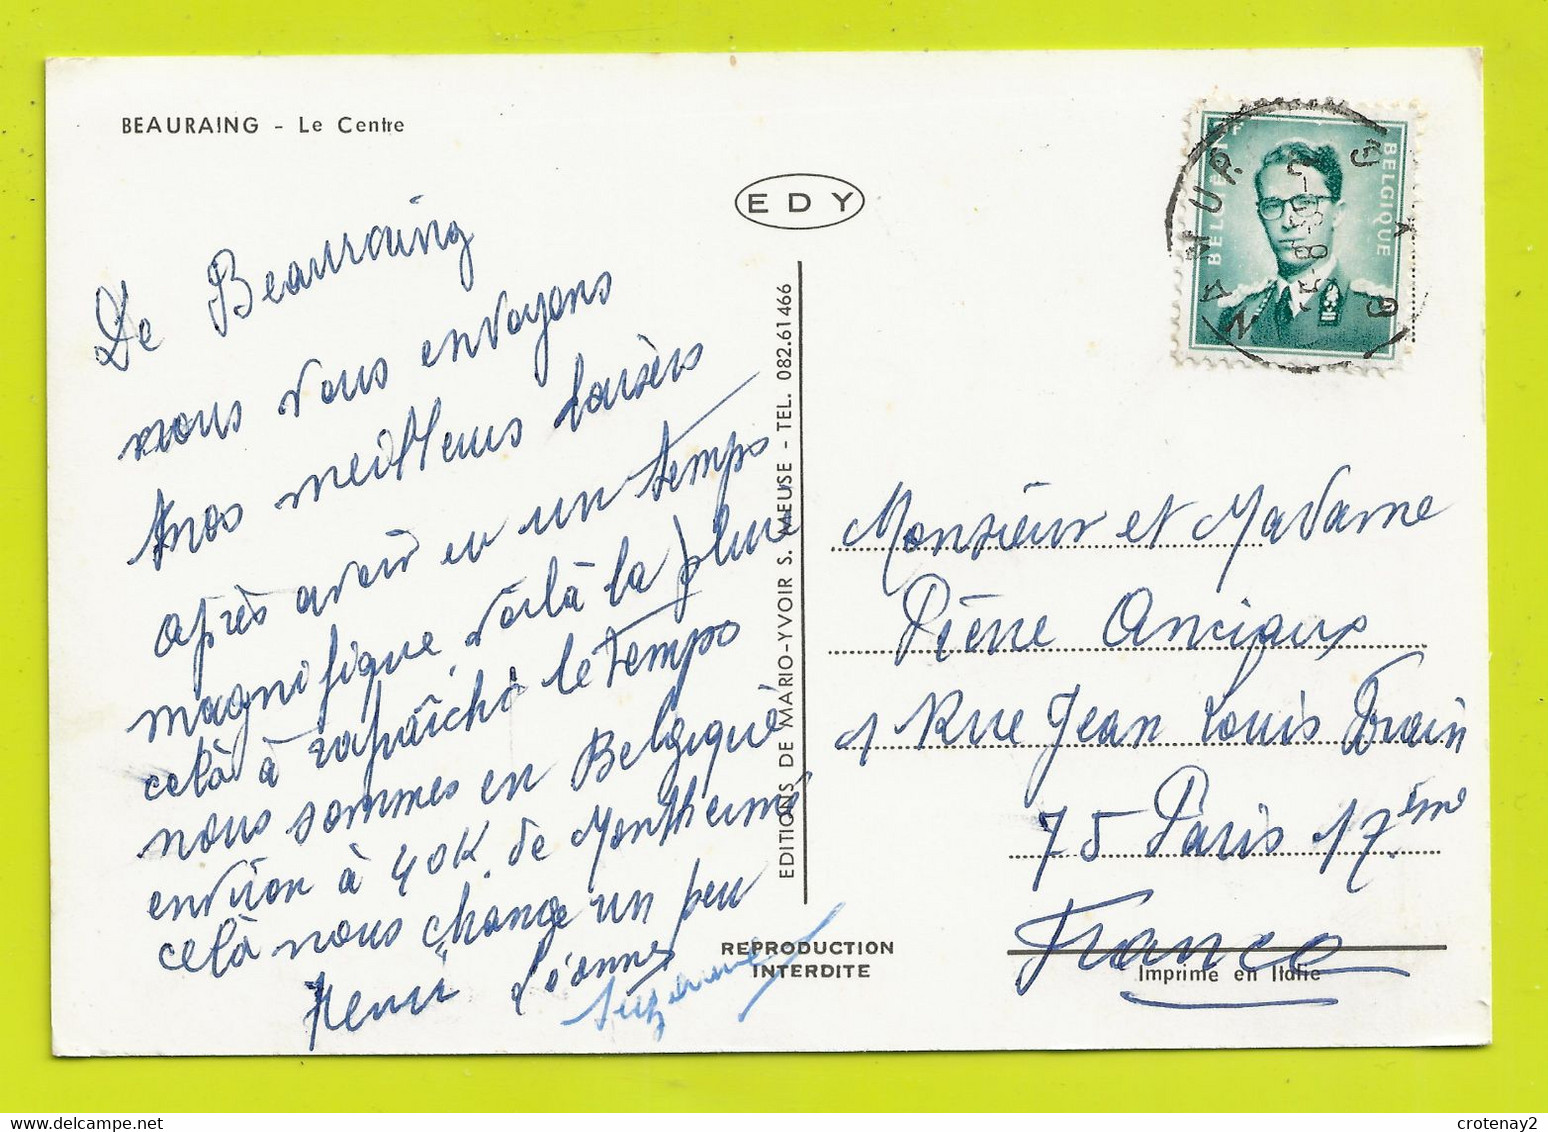 BEAURAING - Le Centre
EDY
BELGIË BELGIQUE
NAMUR
De Beauraing
nous vous envoyons
nos meilleurs baisers
après avoir eu un temps
magnifique, voilà la pluie
celà à rafraîchi le temps
nous sommes en Belgique
environ à 40K. de Monthermé
celà nous change un peu
Henri Léonne
Suzanne
EDITIONS DE MARIO-YVOIR S. MEUSE - TEL. 082.61466
REPRODUCTION
INTERDITE
Monsieur et Madame
Pierre Anciaux
1 Rue Jean Louis Forain
75 Paris 17.ème
France
Imprime en Italie
crotenay2